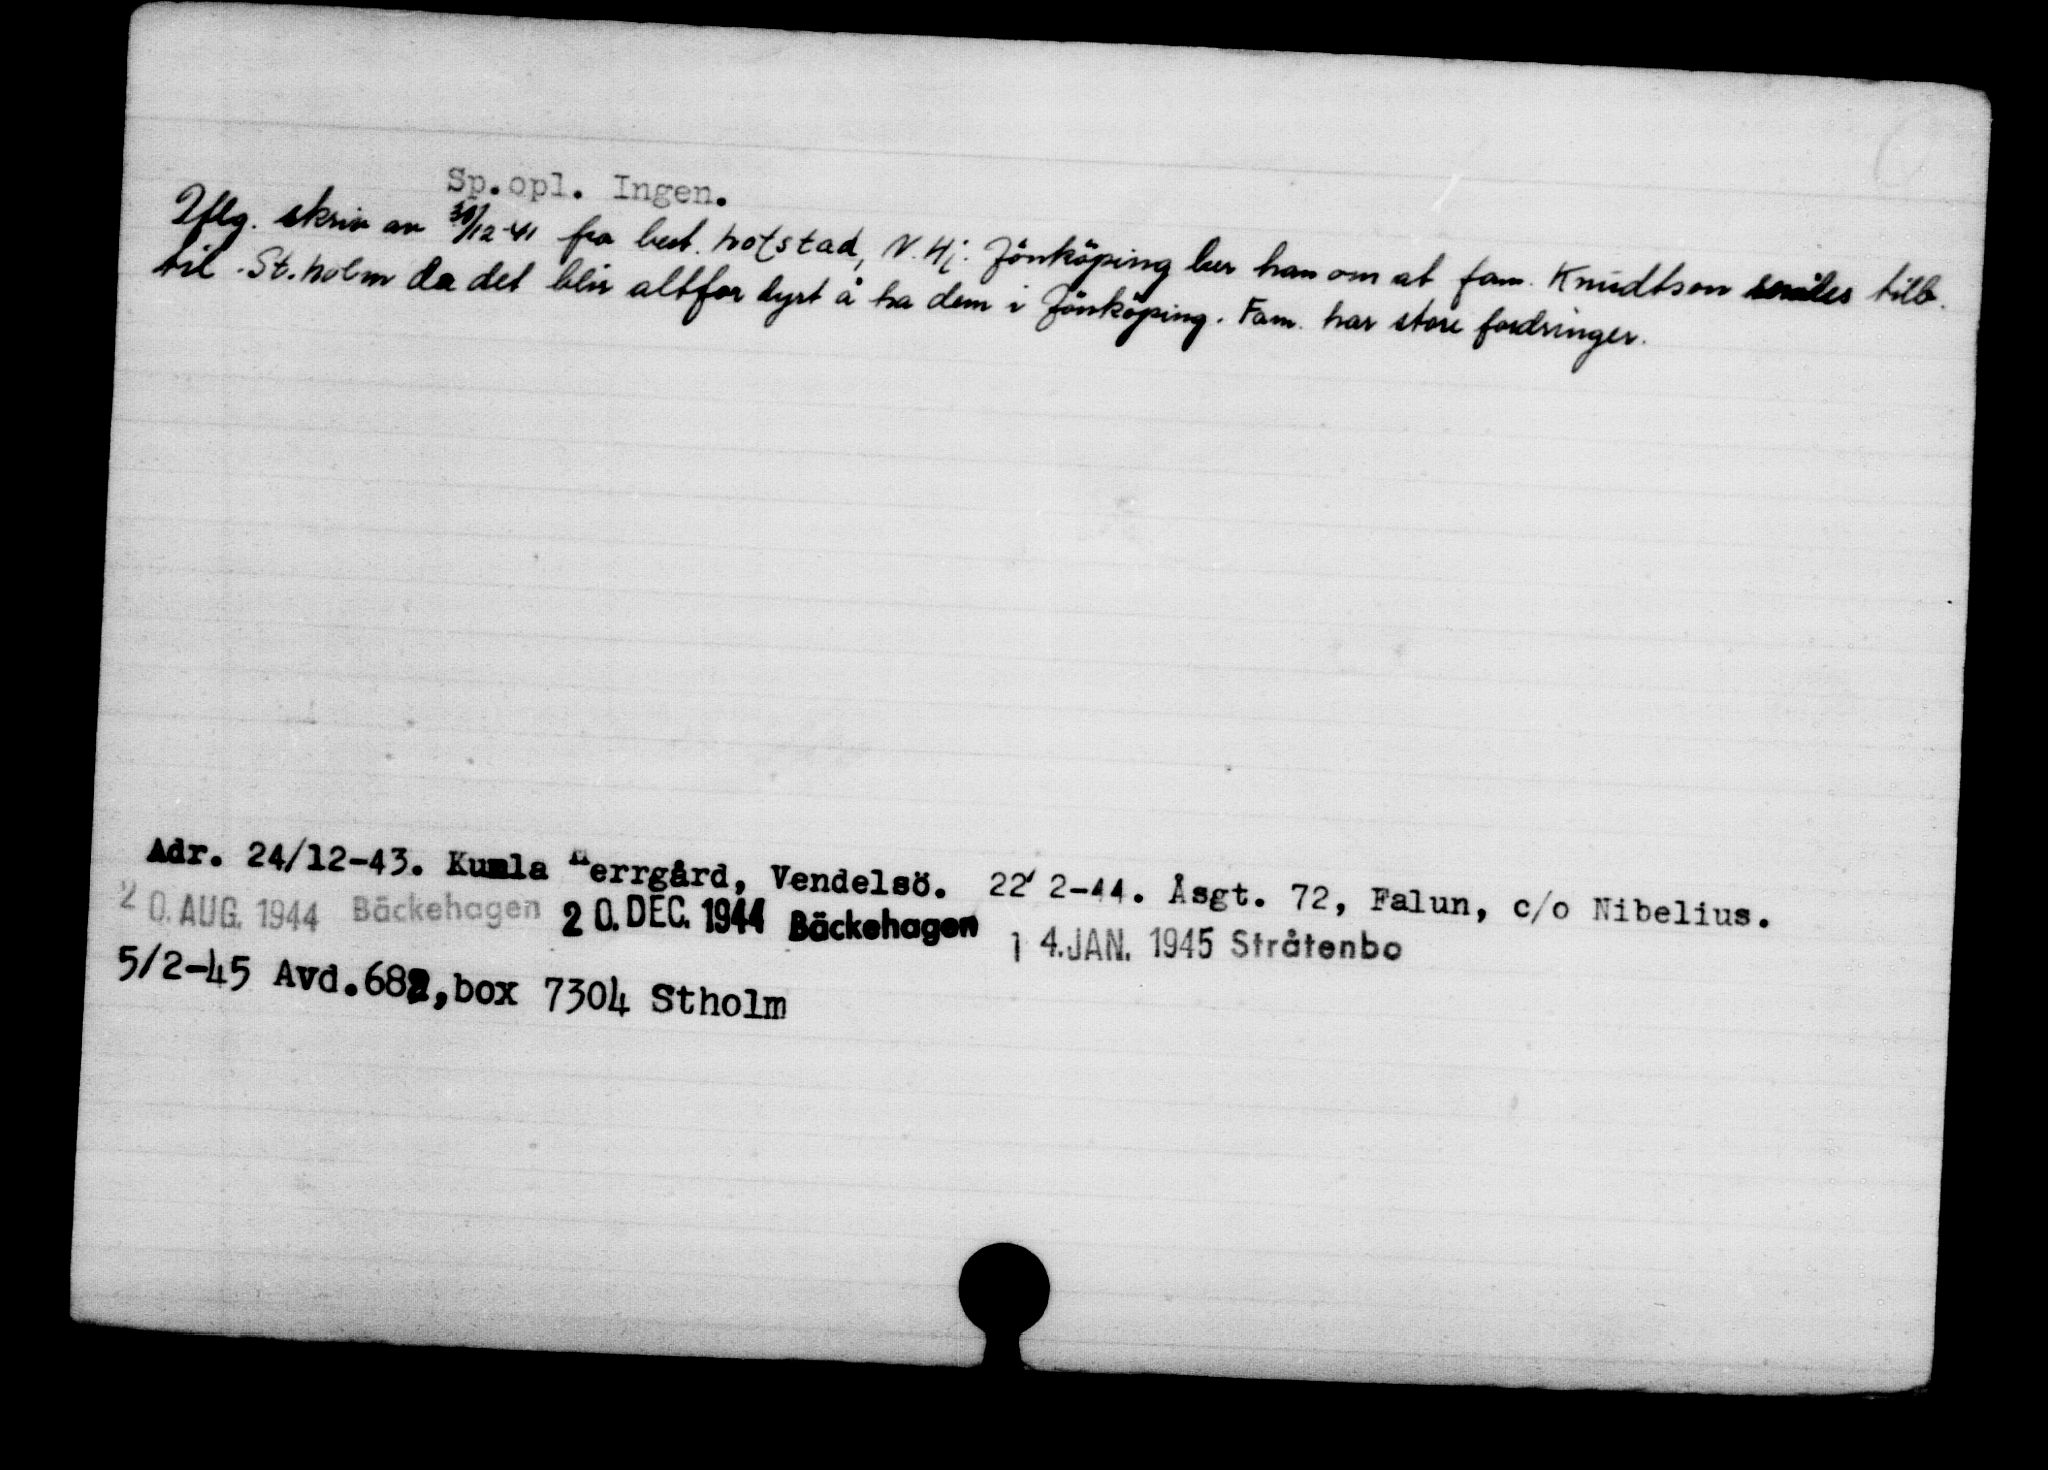 Sp.opl. Ingen.
Iflg. skriv av 30/12-41 fra best. Hofstad, N.Hj. Jönköping ber han om at fam. Knudtson sendes tilb.
til St.holm da det blir altfor dyrt å ha dem i Jönköping. Fam. har store fordringer.
Adr. 24/12-43. Kumla Herrgård, Vendelsö. 22/2-44. Åsgt. 72, Falun, c/o Nibelius.
20. AUG. 1944 Bäckehagen 20. DEC. 1944 Bäckehagen 14. JAN. 1945 Stråtenbo
5/2-45 Avd.682, box 7304 Stholm